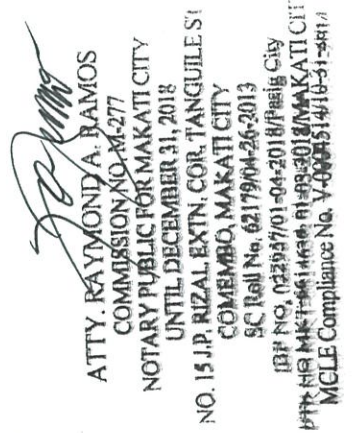 ATTY. RAYMOND A. RAMOS
COMMISSION NO. M-277
NOTARY PUBLIC FOR MAKATI CITY
UNTIL DECEMBER 31, 2018
NO. 15 J.P. RIZAL EXTN. COR. TANGUILE ST
COMEMBO, MAKATI CITY
SC Roll No. 62179/04-26-2013
IBP NO. 022937/01-04-2018/Pasig City
PTR NO MKT 01-03-2018/MAKATI CIT
MCLE Compliance No.